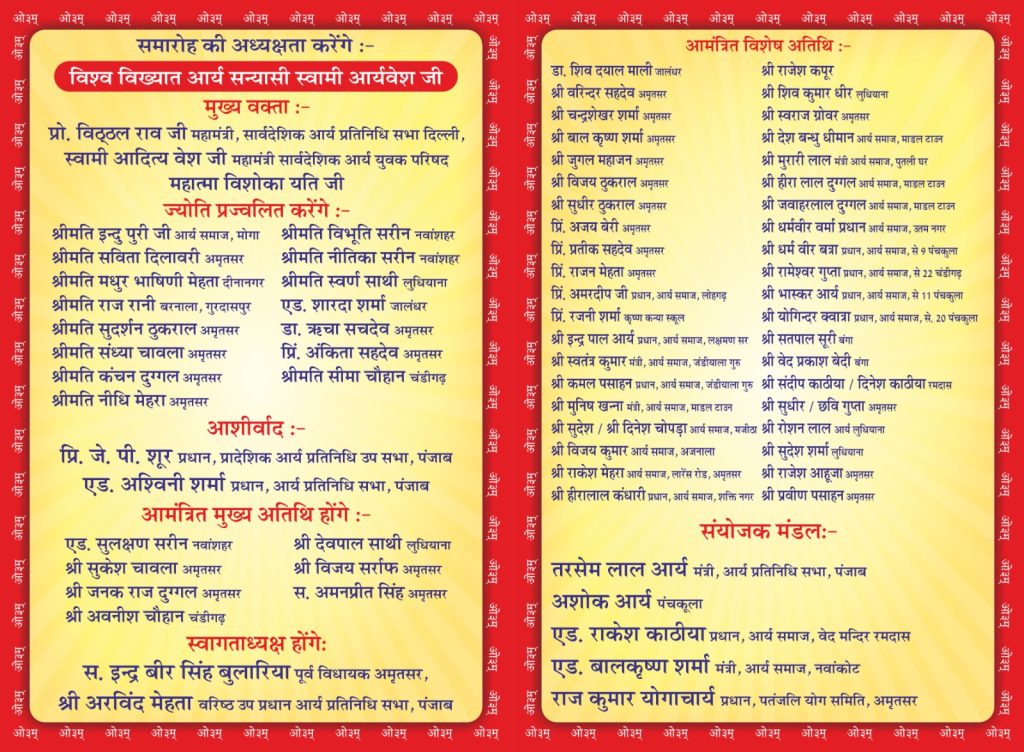 समारोह की अध्यक्षता करेंगे :-
विश्व विख्यात आर्य सन्यासी स्वामी आर्यवेश जी
मुख्य वक्ता :-
प्रो. विठ्ठल राव जी महामंत्री, सार्वदेशिक आर्य प्रतिनिधि सभा दिल्ली,
स्वामी आदित्य वेश जी महामंत्री सार्वदेशिक आर्य युवक परिषद
महात्मा विशोका यति जी
ज्योति प्रज्वलित करेंगे :-
श्रीमति इन्दु पुरी जी आर्य समाज, मोगा
श्रीमति सविता दिलावरी अमृतसर
श्रीमति मधुर भाषिणी मेहता दीनानगर
श्रीमति राज रानी बरनाला, गुरदासपुर
श्रीमति सुदर्शन ठुकराल अमृतसर
श्रीमति संध्या चावला अमृतसर
श्रीमति कंचन दुग्गल अमृतसर
श्रीमति नीधि मेहरा अमृतसर
श्रीमति विभूति सरीन नवांशहर
श्रीमति नीतिका सरीन नवांशहर
श्रीमति स्वर्ण साथी लुधियाना
एड. शारदा शर्मा जालंधर
डा. ऋचा सचदेव अमृतसर
प्रिं. अंकिता सहदेव अमृतसर
श्रीमति सीमा चौहान चंडीगढ़
आशीर्वाद :-
प्रि. जे. पी. शूर प्रधान, प्रादेशिक आर्य प्रतिनिधि उप सभा, पंजाब
एड. अश्विनी शर्मा प्रधान, आर्य प्रतिनिधि सभा, पंजाब
आमंत्रित मुख्य अतिथि होंगे :-
एड. सुलक्षण सरीन नवांशहर
श्री सुकेश चावला अमृतसर
श्री जनक राज दुग्गल अमृतसर
श्री अवनीश चौहान चंडीगढ़
श्री देवपाल साथी लुधियाना
श्री विजय सर्राफ अमृतसर
स. अमनप्रीत सिंह अमृतसर
स्वागताध्यक्ष होंगे:
स. इन्द्र बीर सिंह बुलारिया पूर्व विधायक अमृतसर,
श्री अरविंद मेहता वरिष्ठ उप प्रधान आर्य प्रतिनिधि सभा, पंजाब
आमंत्रित विशेष अतिथि :-
डा. शिव दयाल माली जालंधर
श्री वरिन्दर सहदेव अमृतसर
श्री चन्द्रशेखर शर्मा अमृतसर
श्री बाल कृष्ण शर्मा अमृतसर
श्री जुगल महाजन अमृतसर
श्री विजय ठुकराल अमृतसर
श्री सुधीर ठुकराल अमृतसर
प्रिं. अजय बेरी अमृतसर
प्रिं. प्रतीक सहदेव अमृतसर
प्रिं. राजन मेहता अमृतसर
प्रिं. अमरदिप जी प्रधान, आर्य समाज, लोहगढ़
प्रिं. रजनी शर्मा कृष्ण कन्या स्कूल
श्री इन्द्र पाल आर्य प्रधान, आर्य समाज, लक्षमण सर
श्री स्वतंत्र कुमार मंत्री, आर्य समाज, जंडीयाला गुरु
श्री कमल पसाहन प्रधान, आर्य समाज, जंडीयाला गुरु
श्री मुनिष खन्ना मंत्री, आर्य समाज, माडल टाउन
श्री सुदेश / श्री दिनेश चोपड़ा आर्य समाज, मजीठा
श्री विजय कुमार आर्य समाज, अजनाला
श्री राकेश मेहरा आर्य समाज, लारेंस रोड, अमृतसर
श्री हीरालाल कंधारी प्रधान, आर्य समाज, शक्ति नगर
श्री राजेश कपूर
श्री शिव कुमार धीर लुधियाना
श्री स्वराज ग्रोवर अमृतसर
श्री देश बन्धु धीमान आर्य समाज, माडल टाउन
श्री मुरारी लाल मंत्री आर्य समाज, पुतली घर
श्री हीरा लाल दुग्गल आर्य समाज, माडल टाउन
श्री जवाहरलाल दुग्गल आर्य समाज, माडल टाउन
श्री धर्मवीर वर्मा प्रधान आर्य समाज, उतम नगर
श्री धर्म वीर बत्रा प्रधान, आर्य समाज, से 9 पंचकूला
श्री रामेश्वर गुप्ता प्रधान, आर्य समाज, से 22 चंडीगढ़
श्री भास्कर आर्य प्रधान, आर्य समाज, से 11 पंचकूला
श्री योगिन्दर क्वात्रा प्रधान, आर्य समाज, से. 20 पंचकूला
श्री सतपाल सूरी बंगा
श्री वेद प्रकाश बेदी बंगा
श्री संदीप काठीया / दिनेश काठीया रमदास
श्री सुधीर / छवि गुप्ता अमृतसर
श्री रोशन लाल आर्य लुधियाना
श्री सुदेश शर्मा लुधियाना
श्री राजेश आहूजा अमृतसर
श्री प्रवीण पसाहन अमृतसर
संयोजक मंडल:-
तरसेम लाल आर्य मंत्री, आर्य प्रतिनिधि सभा, पंजाब
अशोक आर्य पंचकूला
एड. राकेश काठीया प्रधान, आर्य समाज, वेद मन्दिर रमदास
एड. बालकृष्ण शर्मा मंत्री, आर्य समाज, नवांकोट
राज कुमार योगाचार्य प्रधान, पतंजलि योग समिति, अमृतसर